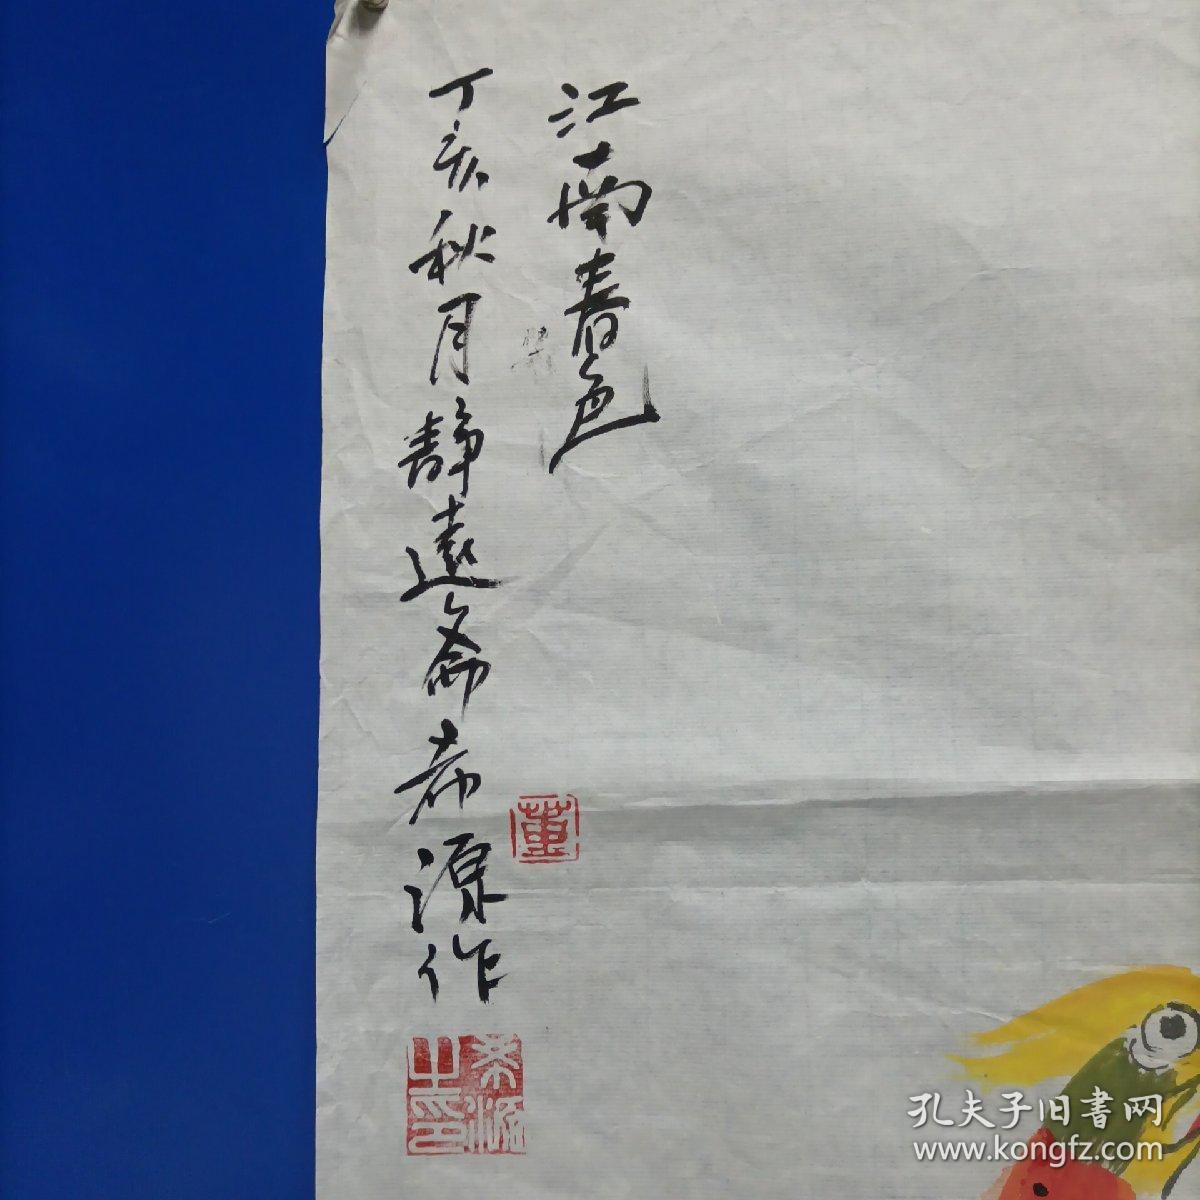 江南春色
丁亥秋月静遠斋希源作
董
希源
之印
孔夫子旧書网
www.kongfz.com